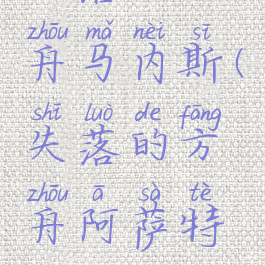 zhōu mǎ nèi sī
舟马内斯(
shī luò de fāng
失落的方
zhōu ā sà tè
舟阿萨特